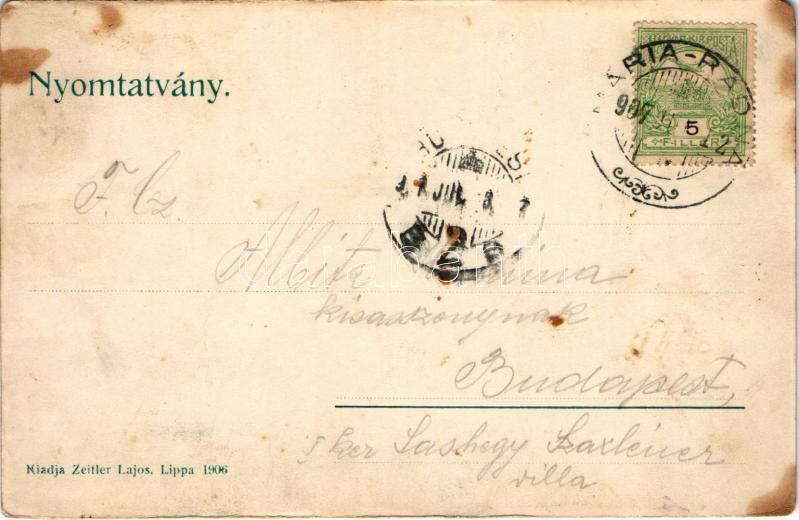 Nyomtatvány.
MAGYAR KIR. POSTA
5
FILLÉR
MÁRIA-RAD
907
JUL. 3.
T. Cz.
Albitz Anna
kisasszonynak
Budapest,
I ker Sashegy Szaxlener
villa
Kiadja Zeitler Lajos, Lippa 1906